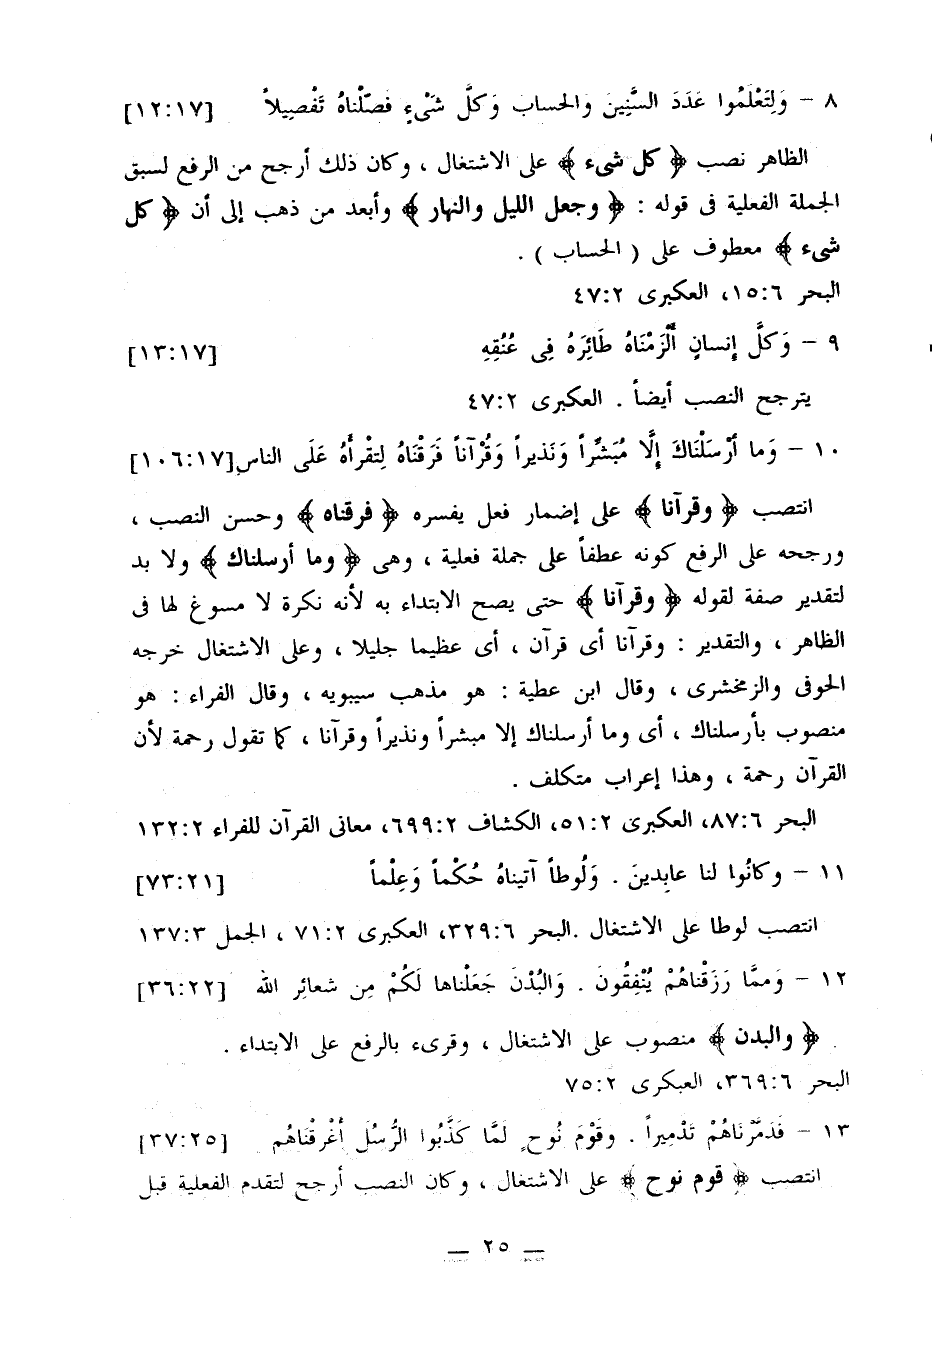 ٨ – وَلِتَعْلَمُوا عَدَدَ السِّنِينَ والحساب وَكلَّ شَىْءٍ فصّلْناهُ تَفْصِيلاً [١٢:١٧]
الظاهر نصب ﴿ كل شىء ﴾ على الاشتغال ، وكان ذلك أرجح من الرفع لسبق
الجملة الفعلية فى قوله : ﴿ وجعل الليل والنهار ﴾ وأبعد من ذهب إلى أن ﴿ كل
شىء ﴾ معطوف على ( الحساب ) .
البحر ١٥:٦، العكبرى ٤٧:٢
٩ – وَكلَّ إنسانٍ أَلْزَمْنَاهُ طَائِرَهُ فِى عُنُقِهِ [١٣:١٧]
يترجح النصب أيضاً . العكبرى ٤٧:٢
١٠ – وَما أرْسَلْنَاكَ إِلَّا مُبَشِّراً وَنَذيراً وَقُرْآناً فَرَقْنَاهُ لِتَقْرأَهُ عَلَى الناسِ[١٠٦:١٧]
انتصب ﴿ وقرآنا ﴾ على إضمار فعل يفسره ﴿ فرقناه ﴾ وحسن النصب ،
ورجحه على الرفع كونه عطفاً على جملة فعلية ، وهى ﴿ وما أرسلناك ﴾ ولا بد
لتقدير صفة لقوله ﴿ وقرآنا ﴾ حتى يصح الابتداء به لأنه نكرة لا مسوغ لها فى
الظاهر ، والتقدير : وقرآنا أى قرآن ، أى عظيما جليلا ، وعلى الاشتغال خرجه
الحوفى والزمخشرى ، وقال ابن عطية : هو مذهب سيبويه ، وقال الفراء : هو
منصوب بأرسلناك ، أى وما أرسلناك إلا مبشراً ونذيراً وقرآنا ، كما تقول رحمة لأن
القرآن رحمة ، وهذا إعراب متكلف .
البحر ٨٧:٦، العكبرى ٥١:٢، الكشاف ٦٩٩:٢، معانى القرآن للفراء ١٣٢:٢
١١ – وكانُوا لنا عابِدينَ . وَلُوطاً آتيناهُ حُكْماً وَعِلْماً [٧٣:٢١]
انتصب لوطا على الاشتغال .البحر ٣٢٩:٦، العكبرى ٧١:٢ ، الجمل ١٣٧:٣
١٢ – وَممَّا رَزَقْناهُمْ يُنْفِقُونَ . وَالبُدْنَ جَعَلْناها لَكُمْ مِن شعائِرِ الله [٣٦:٢٢]
﴿ والبدن ﴾ منصوب على الاشتغال ، وقرىء بالرفع على الابتداء .
البحر ٣٦٩:٦، العبكرى ٧٥:٢
١٣ – فَدَمَّرْنَاهُمْ تَدْمِيراً . وقَوْمَ نُوحٍ لَمَّا كَذَّبُوا الرُّسُلَ أغْرقْنَاهُم [٣٧:٢٥]
انتصب ﴿ قوم نوح ﴾ على الاشتغال ، وكان النصب أرجح لتقدم الفعلية قبل
— ٢٥ —